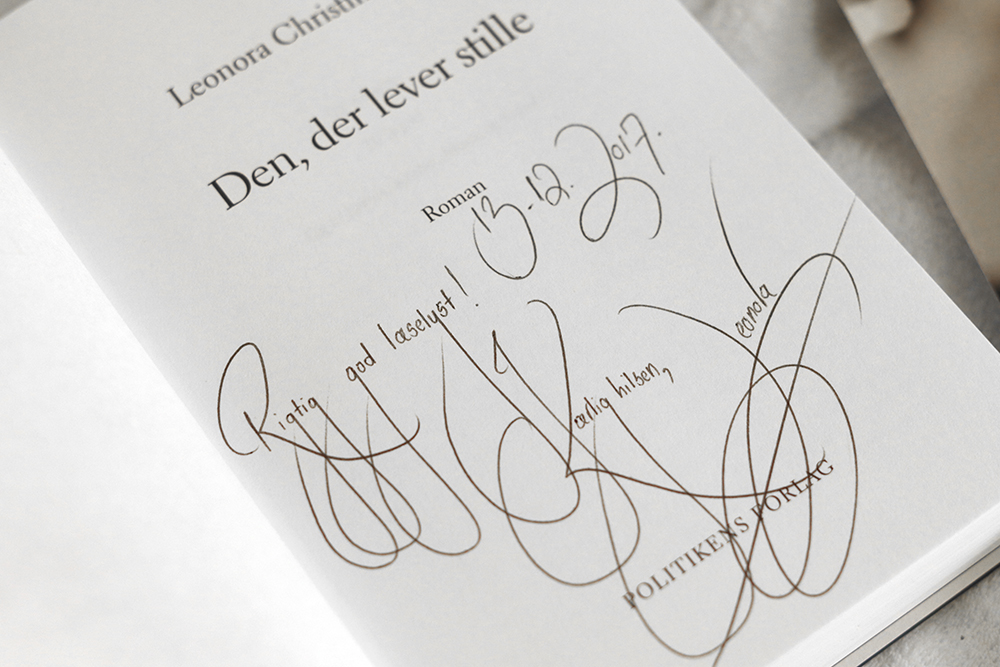 Leonora Christin
Den, der lever stille
Roman
13.-12. 2017.
Rigtig god læselyst!
Kærlig hilsen,
Leonora
POLITIKENS FORLAG